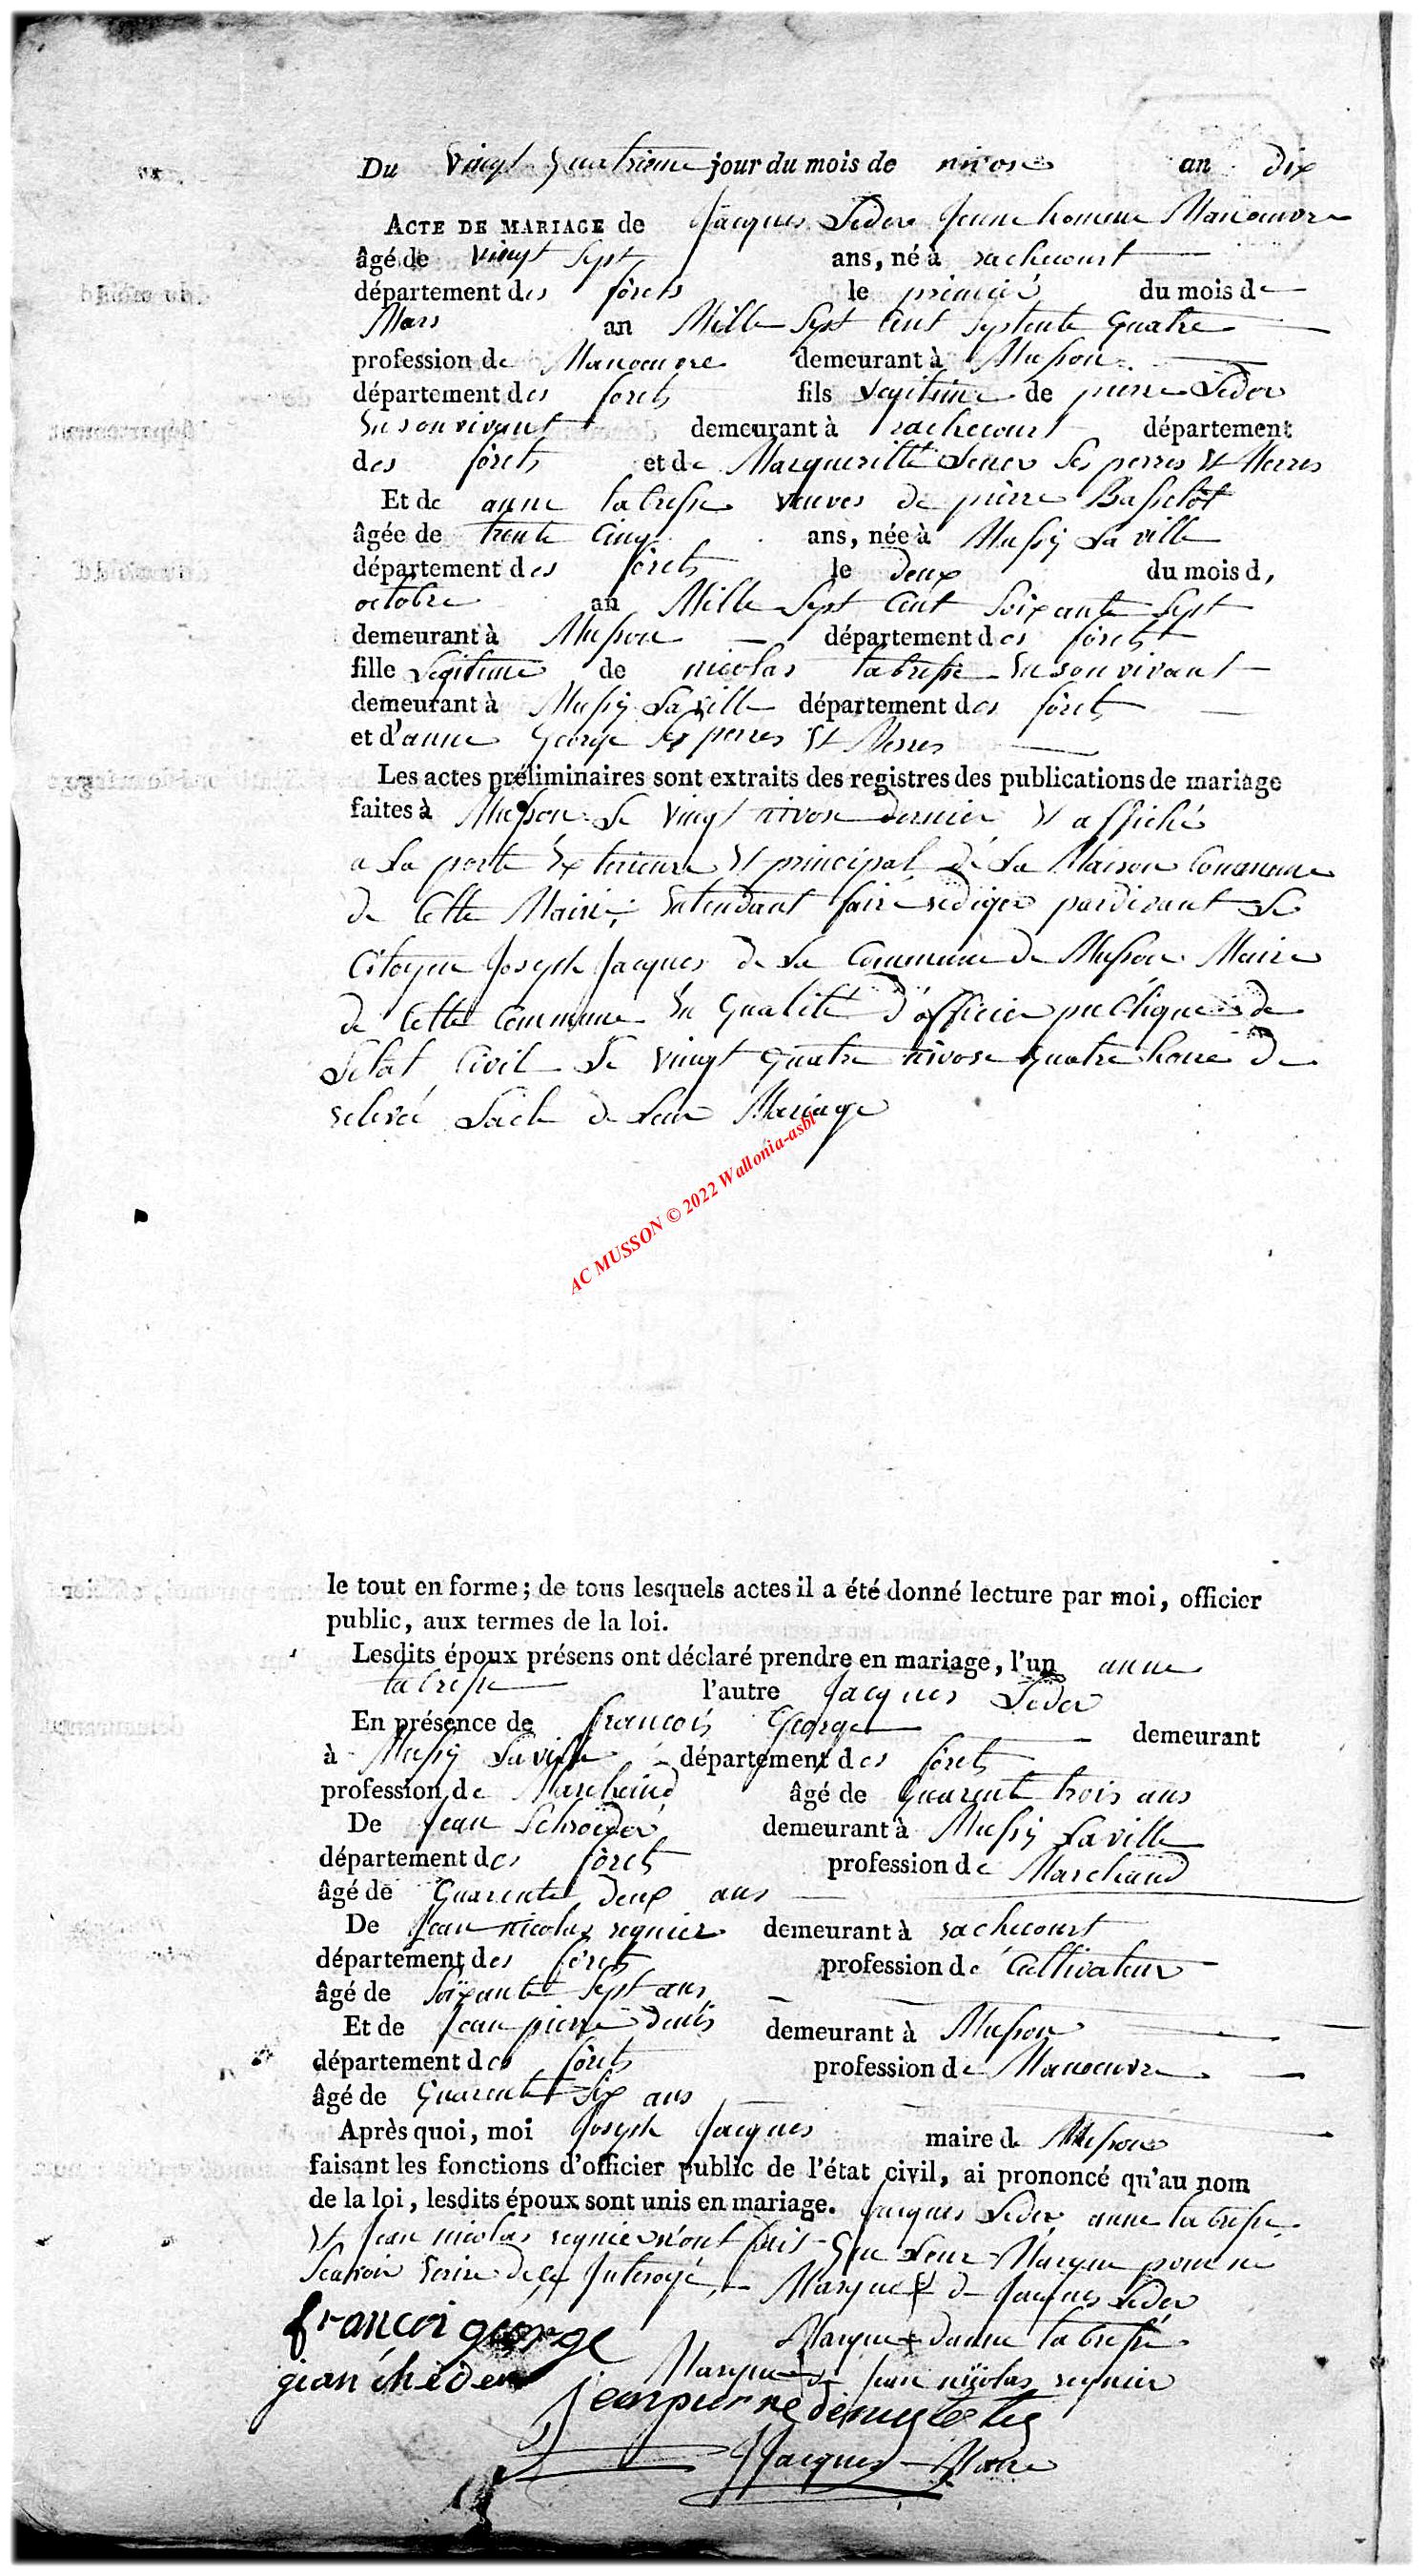 Du vingt quatrieme jour du mois de nivose an dix
ACTE DE MARIAGE de Jacques Seder Jeune homme Manoeuvre
âgé de vingt sept ans, né à rachecourt
département des forets le premier du mois de
Mars an Mille Sept Cent Septente Quatre
profession de Manoeuvre demeurant à Musson
département des forets fils Legitime de pierre Seder
En son vivant demeurant à rachecourt département
des forets et de Margueritte Ses perres Et Merres
Et de anne labresse veuves de pierre Basselot
âgée de trente Cinq ans, née à Mussy La ville
département des forets le deux du mois d,
octobre an Mille Sept Cent Soixante Sept
demeurant à Musson département des forets
fille Legitime de nicolas labresse En son vivant
demeurant à Mussy La ville département des forets
et d'anne George Ses perres Et Merres
Les actes préliminaires sont extraits des registres des publications de mariage
faites à Musson Le vingt nivose dernier Et affiché
a La porte Exterieure Et principal de La Maison Commune
de Cette Mairie, Entendant faire rediger pardevant Le
Citoyen Joseph Jacques de La Commune de Musson Maire
de Cette Commune En Qualité d'officier publique de
Letat Civil Le vingt Quatre nivose Quatre heure de
relevé Lacte de Leur Mariage
AC MUSSON © 2022 Wallonia-asbl
le tout en forme; de tous lesquels actes il a été donné lecture par moi, officier
public, aux termes de la loi.
Lesdits époux présens ont déclaré prendre en mariage, l'un anne
labresse l'autre Jacques Seder
En présence de francois George demeurant
à Mussy La ville département des forets
profession de Marchand âgé de Quarente trois ans
De Jean Schroeder demeurant à Mussy La ville
département des forets profession de Marchand
âgé de Quarente deux ans
De Jean nicolas regnier demeurant à rachecourt
département des forets profession de Cultivateur
âgé de Soixante Sept ans
Et de Jean pierre denis demeurant à Musson
département des forets profession de Manoeuvre
âgé de Quarente Six ans
Après quoi, moi Joseph Jacques maire de Musson
faisant les fonctions d'officier public de l'état civil, ai prononcé qu'au nom
de la loi, lesdits époux sont unis en mariage. Jacques Seder anne labresse
Et Jean nicolas regnier n'ont fais Que Leur Marque pour ne
Scavoir Ecrire de ce Interogé Marque de Jacques Seder
francoi george Marque danne labresse
Marque de Jean nicolas regnier
gian cheder
Jean pierre denis
JJacques Maire